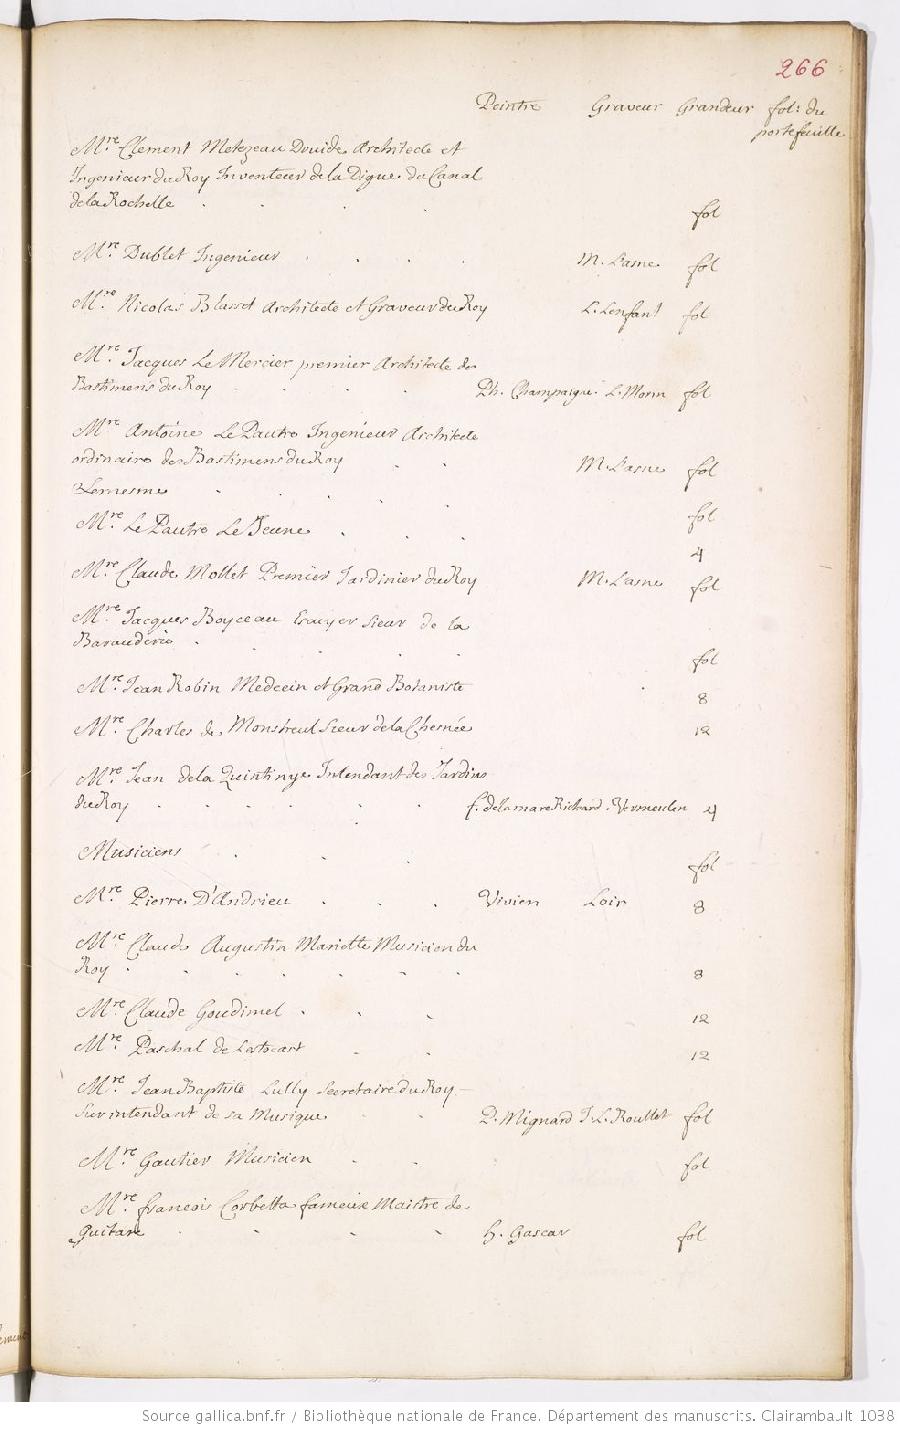 266
Peintre Graveur Grandeur fol: du
portefeuille
Mre. Clement Metezeau Architecte et
Ingenieur du Roy Inventeur de la Digue du Canal
de la Rochelle . . . . fol
Mre. Dublet Ingenieur . . . . M. Lasne fol
Mre. Nicolas Blasset Architecte et Graveur du Roy L. Lenfant fol
Mre. Jacques Le Mercier premier Architecte des
Bastimens du Roy . . . Ph. Champaigne. L. Morin fol
Mre. Antoine Le Pautre Ingenieur Architecte
ordinaire des Bastimens du Roy . . M. Lasne fol
Lemesme . . . . . fol
Mre. Le Pautre Le Jeune . . . 4
Mre. Claude Mollet Premier Jardinier du Roy M. Lasne fol
Mre. Jacques Boyceau Ecuyer Sieur de la
Barauderie . . . . . fol
Mre. Jean Robin Medecin et Grand Botaniste 8
Mre. Charles de Monstreul Sieur de la Chesnée 12
Mre. Jean de la Quintinye Intendant des Jardins
du Roy . . . . . . f. delamare Richard. Vermeulen 4
Musiciens . . . fol
Mre. Pierre D'Andrieu . . . Vivien Loir 8
Mre. Claude Augustin Mariette Musicien du
Roy . . . . . . . 8
Mre. Claude Goudimel . . . 12
Mre. Paschal de Lestocart . . 12
Mre. Jean Baptiste Lully Secretaire du Roy –
Surintendant de sa Musique . . P. Mignard J. L. Roullet fol
Mre. Gautier Musicien . . fol
Mre. francois Corbetta fameux Maistre de
Guitare . . . . h. Gascar fol
Source gallica.bnf.fr / Bibliothèque nationale de France. Département des manuscrits. Clairambault 1038